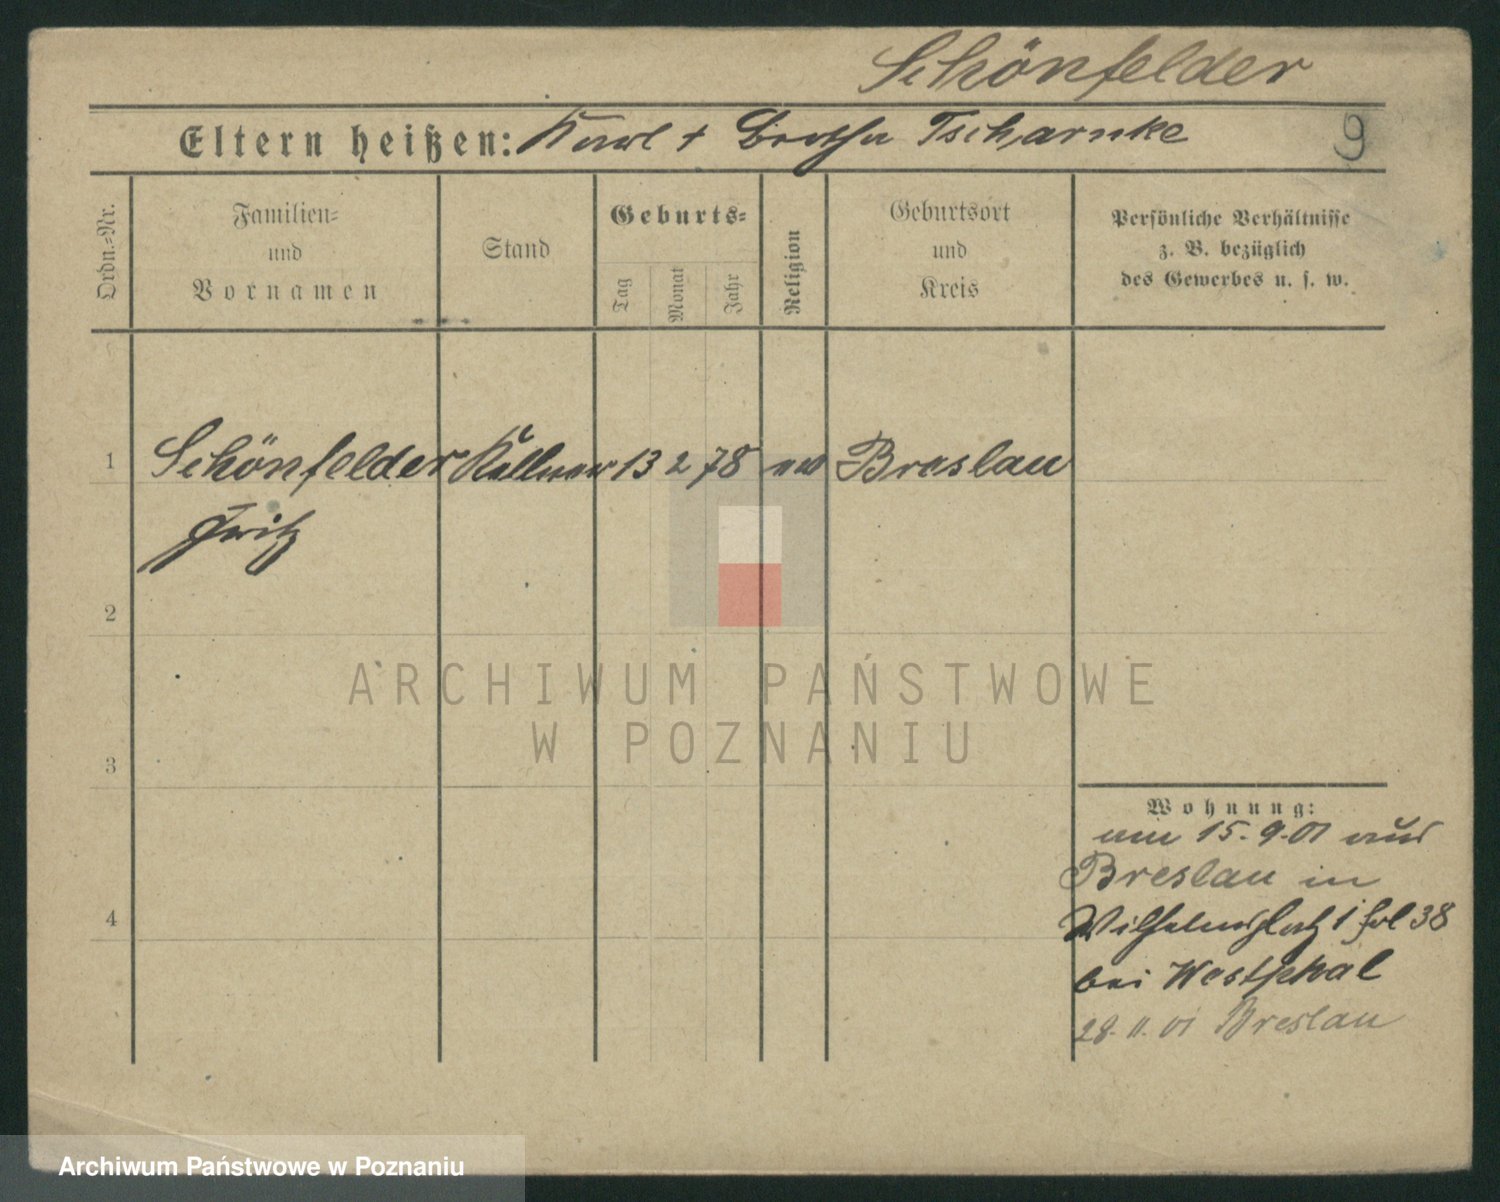 Schönfelder
Eltern heißen: Karl + Tscharnke
9
Ordn.-Nr.
Familien-
und
Vornamen
Stand
Geburts-
Tag
Monat
Jahr
Religion
Geburtsort
und
Kreis
Persönliche Verhältnisse
z. B. bezüglich
des Gewerbes u. s. w.
1 Schönfelder Kellner 13 2 78 Breslau
Fritz
2
ARCHIWUM PAŃSTWOWE
W POZNANIU
3
Wohnung:
15.9.01 aus
Breslau in
4
Wilhelmsplatz 1 38
bei Westphal
28.11.01 Breslau
Archiwum Państwowe w Poznaniu